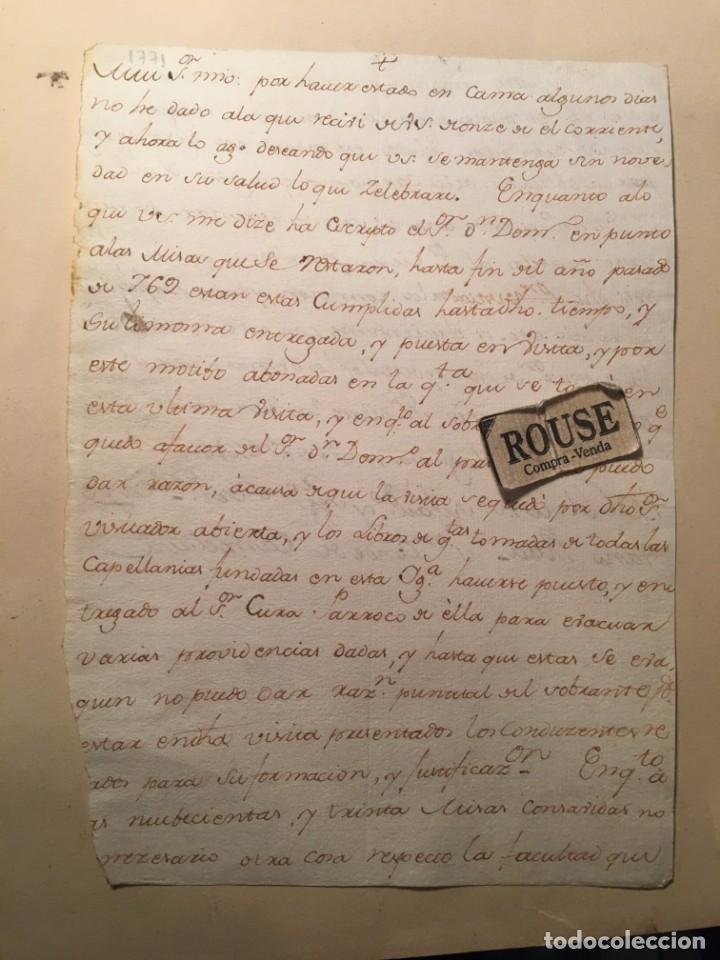 1771
+
Mui S.or mio: por haver estado en Cama algunos dias
no he dado a la que reciví de vs. de onze de el corriente,
y ahora lo ago deseando que vs. se mantenga sin nove
dad en su salud lo que Zelebrare. Enquanto alo
que vs. me dize ha Escripto el S.r d.n Dom.o en punto
alas Misas que se restaron, hasta fin del año pasado
de 769 estan estas Cumplidas hasta dho. tiempo, y
su limosna entregada, y puesta en visita, y por
este motibo abonadas en la q.ta que se en
esta ultima visita, y enq.to al sobr q.e
quedo afavor del S.r d.n Dom.o al pr puedo
dar razon, àcausa de que la visita se quedó por dho S.r
visitador abierta, y los Libros de q.tas tomadas de todas las
Capellanias fundadas en esta Yg.a haverse puesto, y en
tregado al S.or Cura Parroco de èlla para evacuar
varias providencias dadas, y hasta que estas se eva,
quen no puedo dar raz.n puntual del sobrante p.r
estar en dha visita presentados los Conduzentes re
ados para su formacion, y justificaz.on Enq.to à
as nuebecientas, y treinta Misas Consavidas no
necesario otra cosa respecto la facultad que
ROUSE
Compra-Venda
todocoleccion
todocoleccion.net